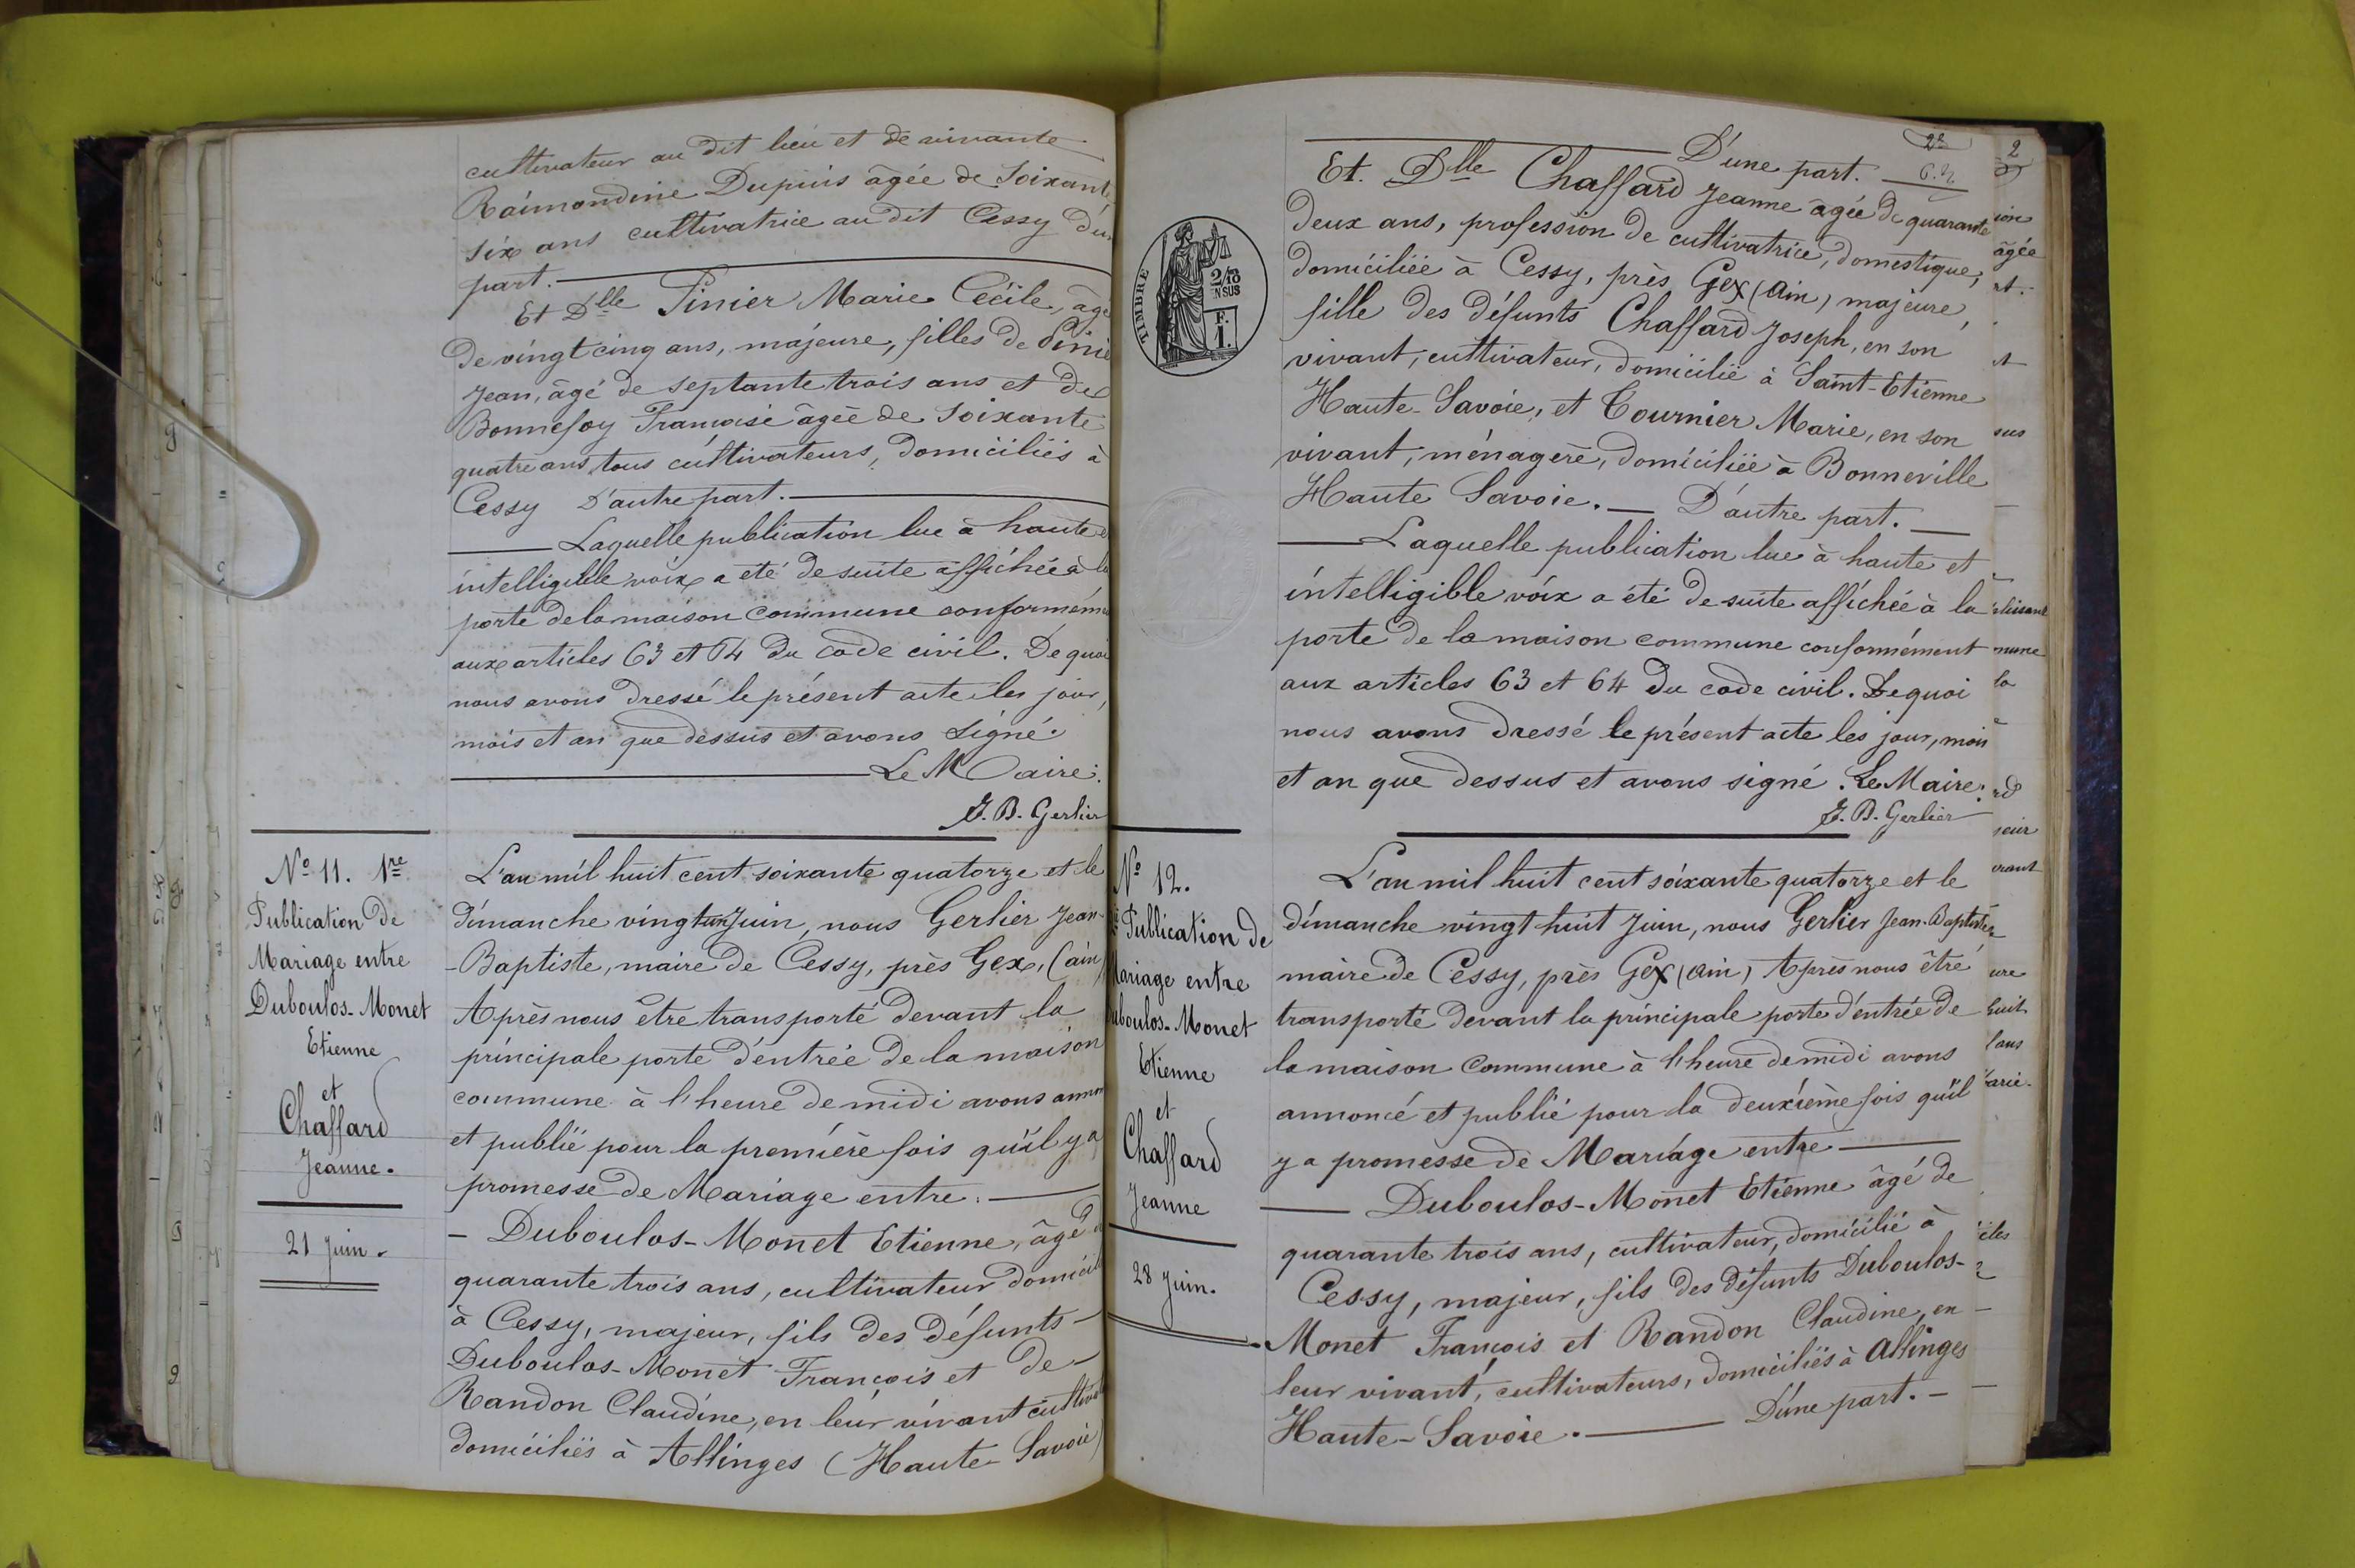 cultivateur au dit lieu et de vivante
Raimondine Dupuis âgée de soixante
six ans cultivatrice au dit Cessy d'une
part.
Et Dlle Pinier Marie Cécile, âgée
de vingt cinq ans, majeure, filles de Pinier
Jean, âgé de septante trois ans et de
Bonnefoy Françoise âgée de soixante
quatre ans, tous cultivateurs, domiciliés à
Cessy D'autre part.
Laquelle publication lue à haute et
intelligible voix a été de suite affichée à la
porte de la maison commune conformément
aux articles 63 et 64 du code civil. De quoi
nous avons dressé le présent acte les jour,
mois et an que dessus et avons signé.
Le Maire:
J. B. Gerlier
No 11. 1re
Publication de
Mariage entre
Duboulos-Monet
Etienne
et
Chaffard
Jeanne.
21 Juin.
L'an mil huit cent soixante quatorze et le
dimanche vingt un Juin, nous Gerlier Jean-
-Baptiste, maire de Cessy, près Gex, (Ain)
Après nous être transporté devant la
principale porte d'entrée de la maison
commune à l'heure de midi avons annon
et publié pour la première fois qu'il y a
promesse de Mariage entre.
- Duboulos-Monet Etienne, âgé de
quarante trois ans, cultivateur domicilié
à Cessy, majeur, fils des défunts -
Duboulos-Monet François et de -
Randon Claudine, en leur vivant cultiva
domiciliés à Allinges (Haute-Savoie)
22
D'une part.
Et. Dlle Chaffard Jeanne âgée de quarante
deux ans, profession de cultivatrice, domestique,
domiciliée à Cessy, près Gex (Ain) majeure,
fille des défunts Chaffard Joseph, en son
vivant, cultivateur, domicilié à Saint-Etienne
Haute-Savoie, et Tournier Marie, en son
vivant, ménagère, domiciliée à Bonneville
Haute Savoie. — D'autre part. —
TIMBRE
2/10
EN SUS
F.
1.
Laquelle publication lue à haute et
intelligible voix a été de suite affichée à la
porte de la maison commune conformément
aux articles 63 et 64 du code civil. De quoi
nous avons dressé le présent acte les jour, mois
et an que dessus et avons signé. Le Maire:
J. B. Gerlier
No 12.
Publication de
Mariage entre
Duboulos-Monet
Etienne
et
Chaffard
Jeanne
28 Juin.
L'an mil huit cent soixante quatorze et le
dimanche vingt huit Juin, nous Gerlier Jean-Baptiste
maire de Cessy, près Gex (Ain) Après nous être
transporté devant la principale porte d'entrée de
la maison commune à l'heure de midi avons
annoncé et publié pour la deuxième fois qu'il
y a promesse de Mariage entre
Duboulos-Monet Etienne âgé de
quarante trois ans, cultivateur, domicilié à
Cessy, majeur, fils des défunts Duboulos-
Monet François et Randon Claudine, en
leur vivant, cultivateurs, domiciliés à Allinges
Haute-Savoie. — D'une part. -